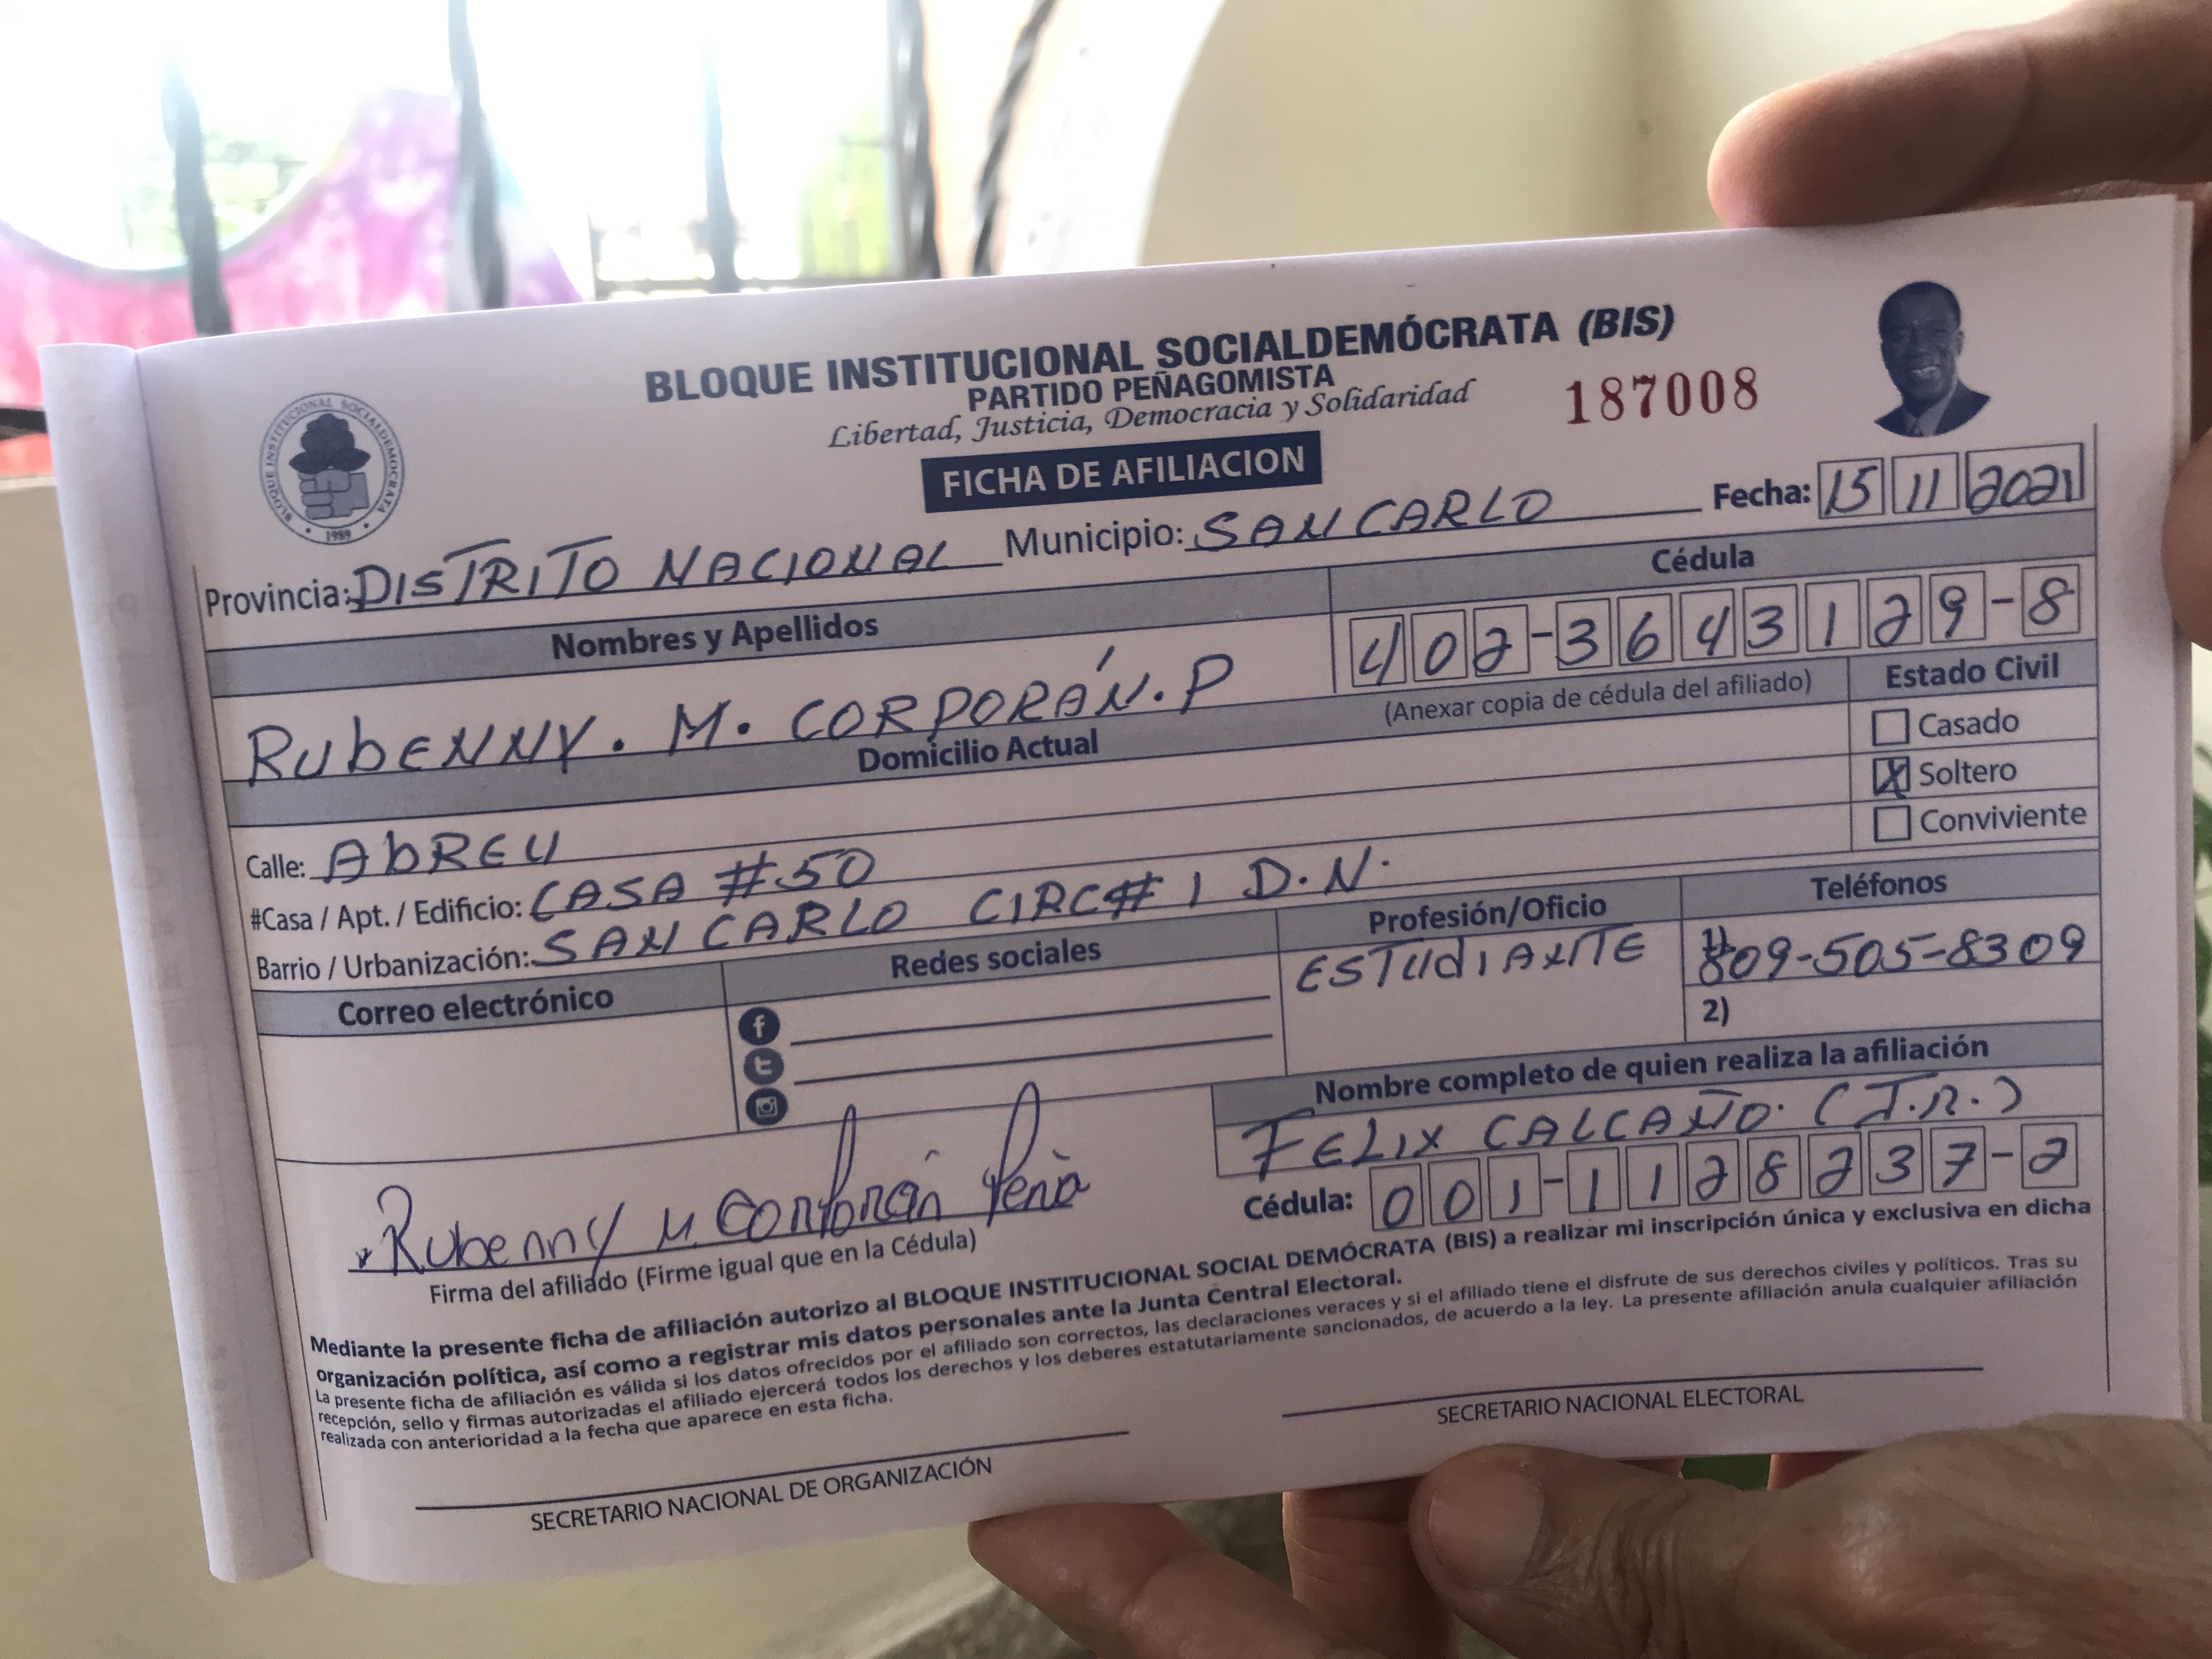 BLOQUE INSTITUCIONAL SOCIALDEMÓCRATA (BIS)
PARTIDO PEÑAGOMISTA
Libertad, Justicia, Democracia y Solidaridad
187008
BLOQUE INSTITUCIONAL SOCIALDEMOCRATA
1989
FICHA DE AFILIACION
Fecha: 15 11 2021
Provincia: DISTRITO NACIONAL Municipio: SAN CARLO
Nombres y Apellidos
Cédula
RUbENNY. M. CORPORÁN. P
402-3643129-8
(Anexar copia de cédula del afiliado)
Estado Civil
Casado
X Soltero
Conviviente
Domicilio Actual
Calle: AbREU
#Casa / Apt. / Edificio: CASA #50
Barrio / Urbanización: SAN CARLO CIRC# 1 D.N.
Correo electrónico
Redes sociales
Profesión/Oficio
ESTUdIANTE
Teléfonos
1) 809-505-8309
2)
Nombre completo de quien realiza la afiliación
FELIX CALCAÑO. (J.R.)
Cédula: 001-1128237-2
Rubenny M. Corporán Peña
Firma del afiliado (Firme igual que en la Cédula)
Mediante la presente ficha de afiliación autorizo al BLOQUE INSTITUCIONAL SOCIAL DEMÓCRATA (BIS) a realizar mi inscripción única y exclusiva en dicha
organización política, así como a registrar mis datos personales ante la Junta Central Electoral.
La presente ficha de afiliación es válida si los datos ofrecidos por el afiliado son correctos, las declaraciones veraces y si el afiliado tiene el disfrute de sus derechos civiles y políticos. Tras su
recepción, sello y firmas autorizadas el afiliado ejercerá todos los derechos y los deberes estatutariamente sancionados, de acuerdo a la ley. La presente afiliación anula cualquier afiliación
realizada con anterioridad a la fecha que aparece en esta ficha.
SECRETARIO NACIONAL DE ORGANIZACIÓN
SECRETARIO NACIONAL ELECTORAL